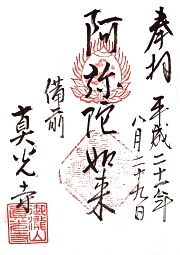 奉拝
平成二十一年
八月二十九日
阿弥陀如来
備前
真光寺